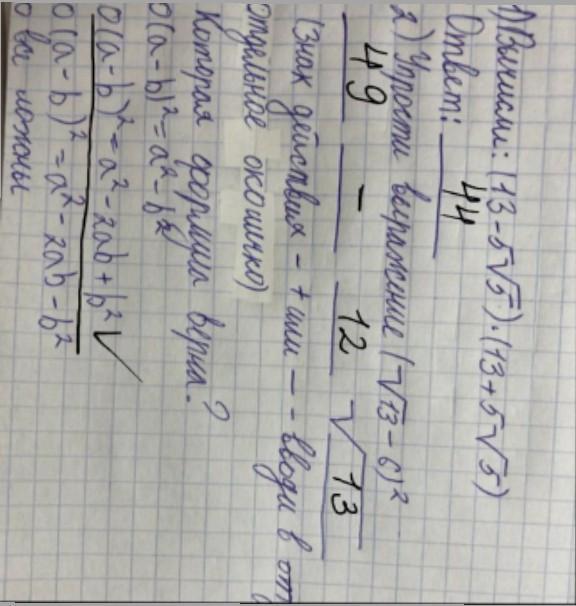 1) Вычисли: (13-5√5)·(13+5√5)
Ответ: 44
2) Упрости выражение (√13-6)²
49 - 12 √13
(Знак действия - + или - - вводи в отд
отдельное окошко)
Которая формула верна?
О(a-b)²=a²-b²
О(a-b)²=a²-2ab+b² ✓
О(a-b)²=a²-2ab-b²
О вы ложны